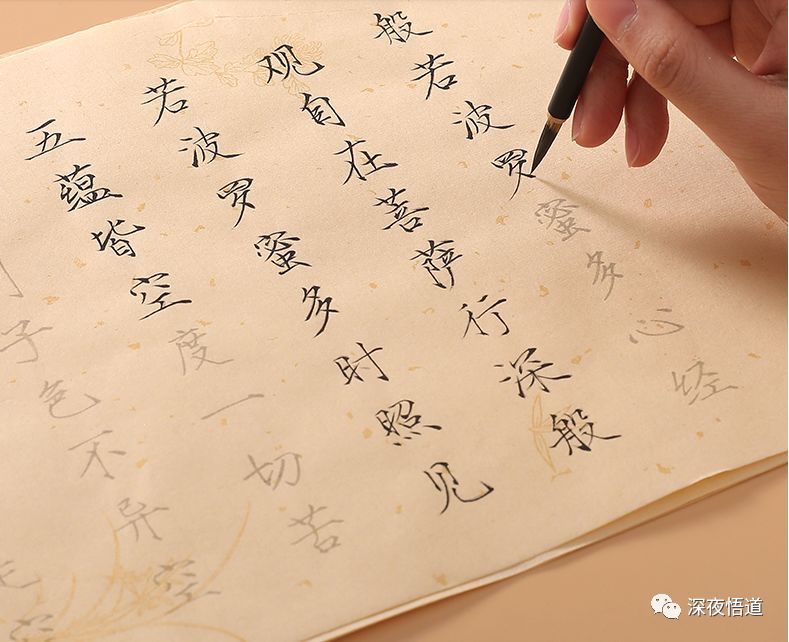 般若波罗蜜多心经
观自在菩萨行深般
若波罗蜜多时照见
五蕴皆空度一切苦
子色不异空
空
深夜悟道